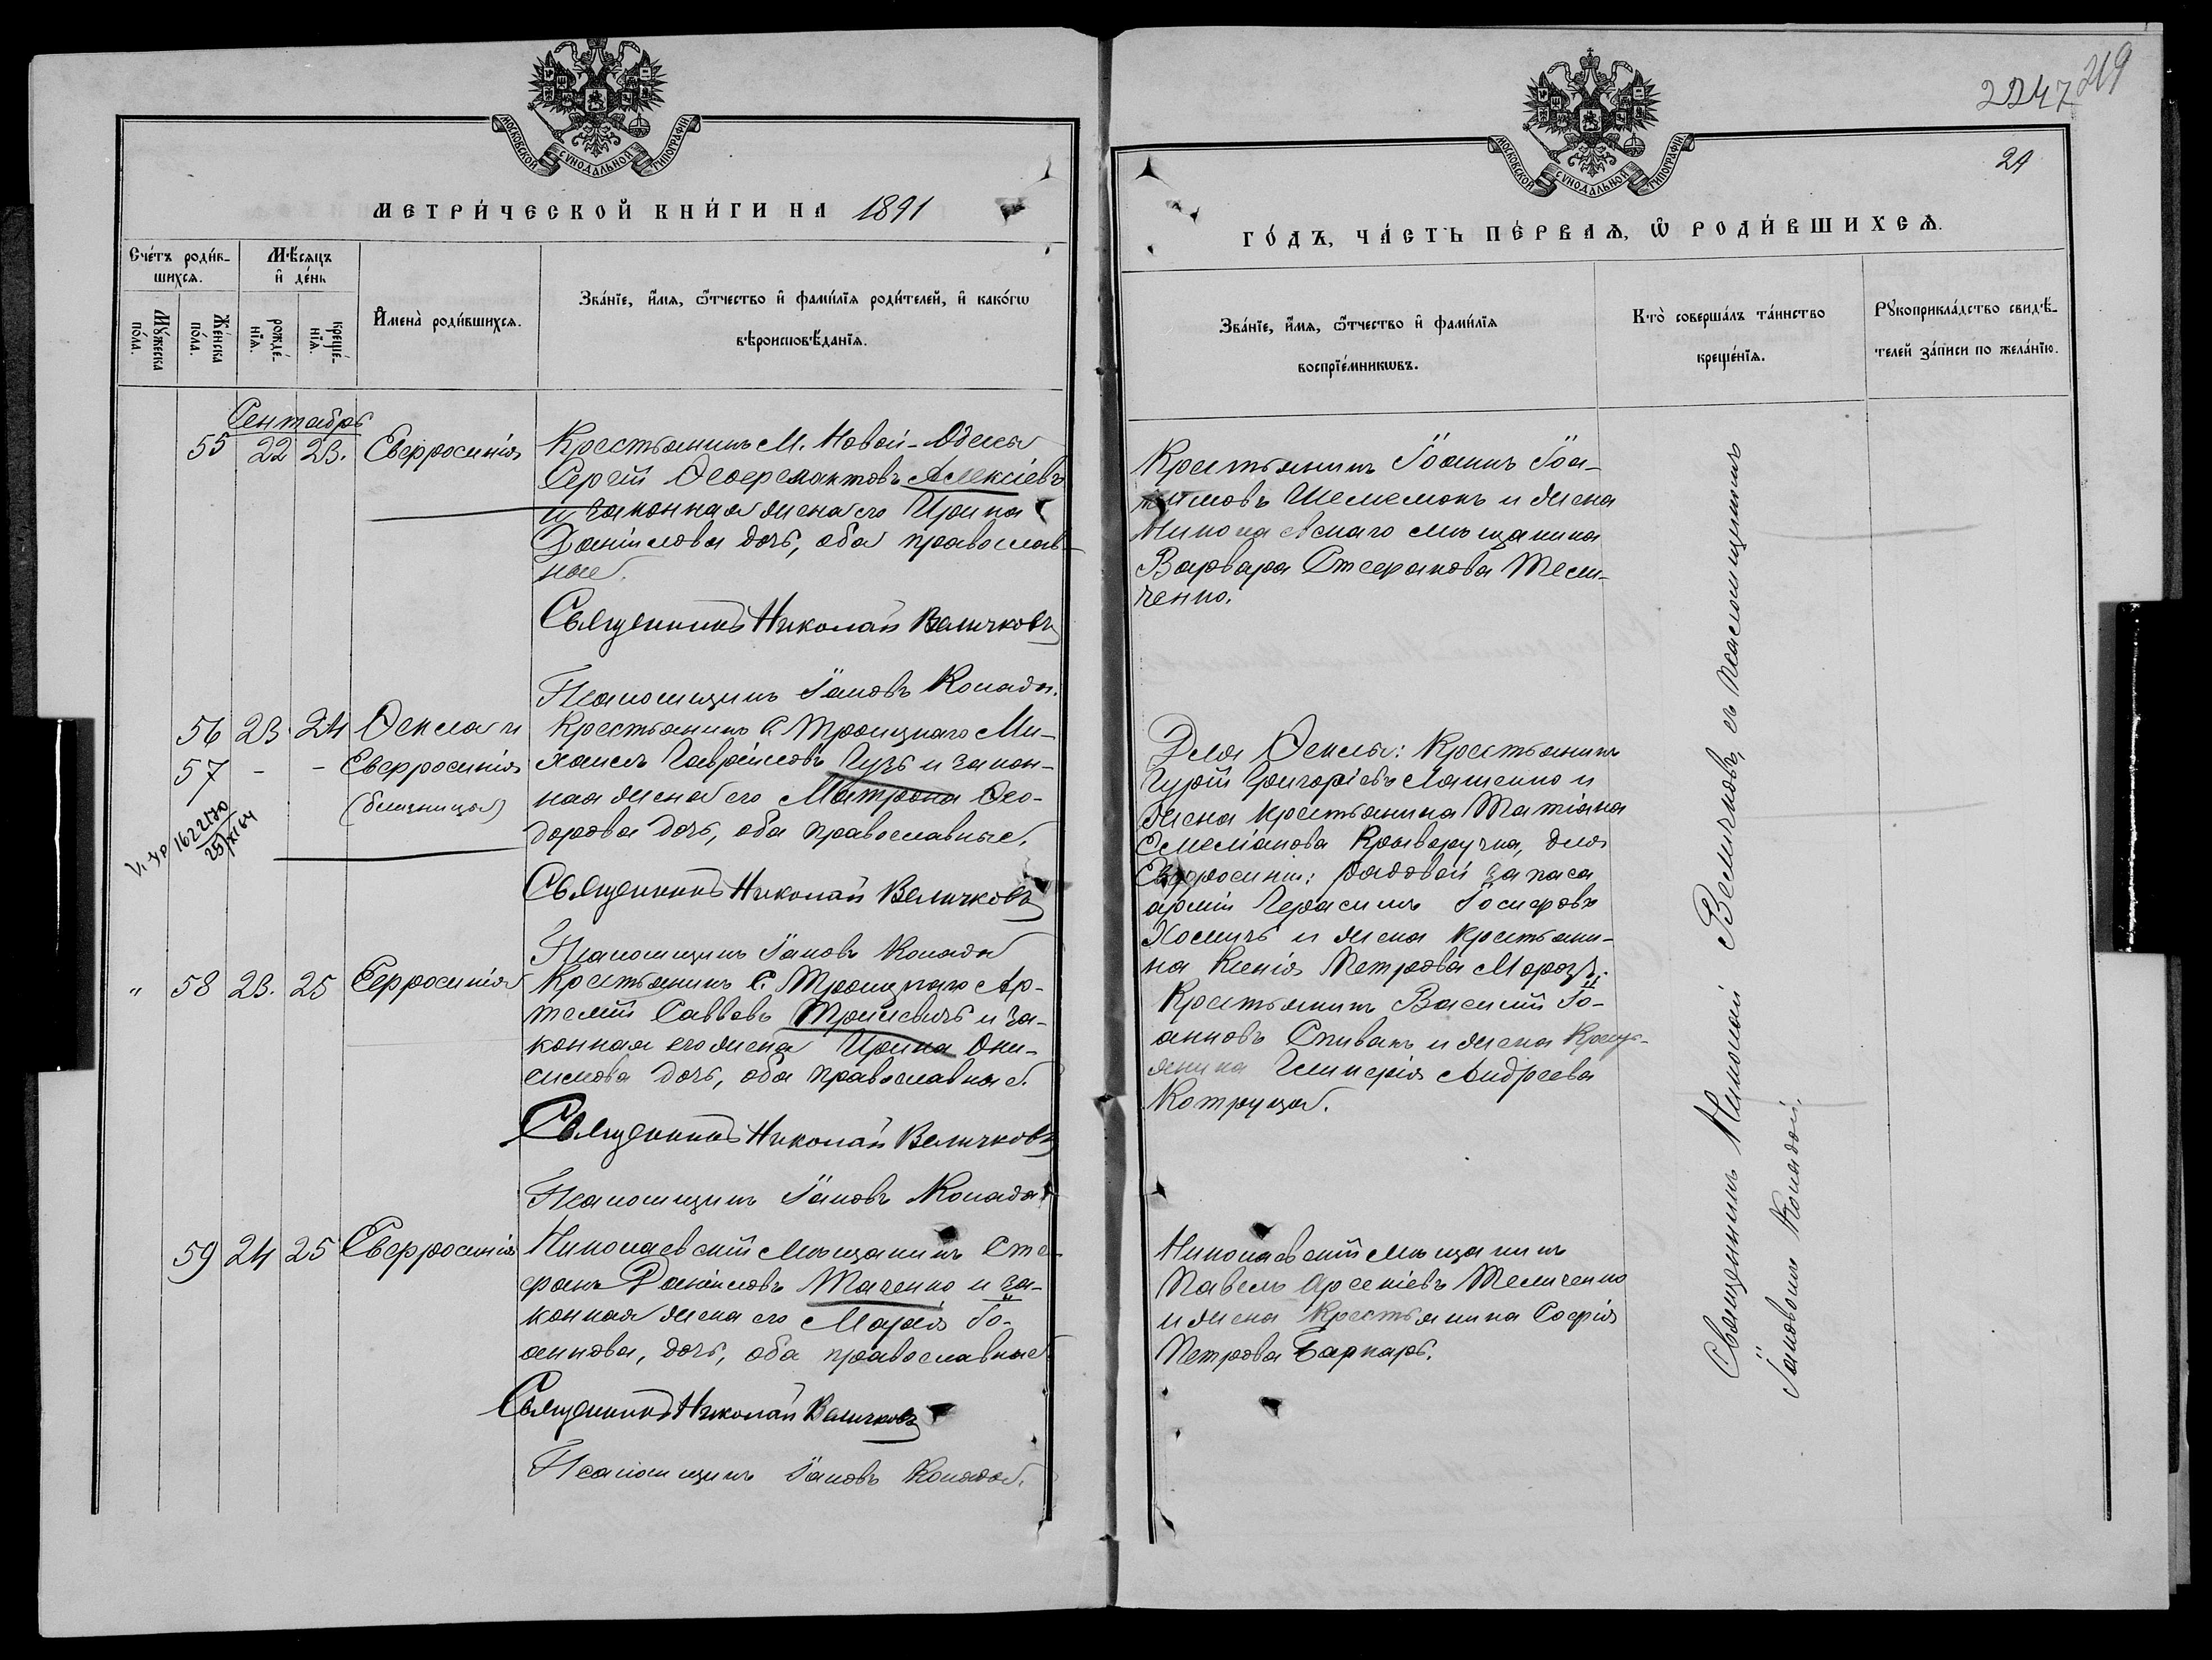 МОСКОВСКОЙ СУНОДАЛЬНОЙ ТИПОГРАФІИ
МЕТРИ́ЧЕСКОЙ КНИ́ГИ НА 1891
Сче́тъ роди́в-
шихсѧ.
Мѣ́сяцъ
и҆ де́нь
Мꙋ́жеска
по́ла.
Же́нска
по́ла.
рожде́-
нїѧ.
креще́-
нїѧ.
И҆мена̀ роди́вшихсѧ.
Зва́нїе, и҆́мѧ, ѻ҆́тчество и҆ фами́лїѧ роди́телей, и҆ како́гѡ
вѣроисповѣ́данїѧ.
Сентябрь
55 22 23. Евфросинія
Крестьянинъ М. Новой-Одессы
Сергій Ѳеофилактовъ Алексіевъ
и законная жена его Ирина
Даніилова дочь, оба православ-
ные.
Священникъ Николай Величковъ
Псаломщикъ Іаковъ Коляда.
56 23. 24 Ѳекла и
57 - - Евфросинія
(близницы)
25/XI 64
Крестьянинъ С. Троицкаго Ми-
хаилъ Гавріиловъ Гузь и закон-
ная жена его Матрона Ѳео-
дорова дочь, оба православные.
Священникъ Николай Величковъ
Псаломщикъ Іаковъ Коляда
" 58 23. 25 Ефросинія
Крестьянинъ С. Троицкаго Ар-
темій Саввовъ и за-
конная его жена Ирина Они-
симова дочь, оба православные.
Священникъ Николай Величковъ
Псаломщикъ Іаковъ Коляда
59 24 25 Евфросинія
Николаевскій мѣщанинъ Сте-
фанъ Даніиловъ Ткаченко и за-
конная жена его Марія Іо-
аннова, дочь, оба православные.
Священникъ Николай Величковъ
Псаломщикъ Іаковъ Коляда.
219
2247
МОСКОВСКОЙ СУНОДАЛЬНОЙ ТИПОГРАФІИ
ГО́ДЪ, ЧА́СТЬ ПЕ́РВАѦ, Ѡ҆ РОДИ́ВШИХСѦ.
Зва́нїе, и҆́мѧ, ѻ҆́тчество и҆ фами́лїѧ
воспрїе́мникѡвъ.
Кто̀ соверша́лъ та́инство
креще́нїѧ.
Рꙋкоприкла́дство свидѣ́-
телей за́писи по жела́нїю.
Крестьянинъ Іоаннъ Іоа-
кимовъ Шелемокъ и жена
Николаевскаго мѣщанина
Варвара Стефанова Тели-
ченко.
Для Ѳеклы: Крестьянинъ
Гурій Григоріевъ Ляшенко и
жена крестьянина Татіана
Емеліанова Криворучка, для
Евфросиніи: рядовой запаса
арміи Герасимъ Іосифовъ
Хомичъ и жена крестьяни-
на Ксенія Петрова Морозъ.
Крестьянинъ Василій Іо-
анновъ Спивакъ и жена Кресть-
янина Гликерія Андреева
Котруца.
Николаевскій мѣщанинъ
Павелъ Арсеніевъ Теличенко
и жена Крестьянина Софія
Петрова Баркарь.
Священникъ Николай Величковъ, съ псаломщикомъ
Іаковомъ Колядой.